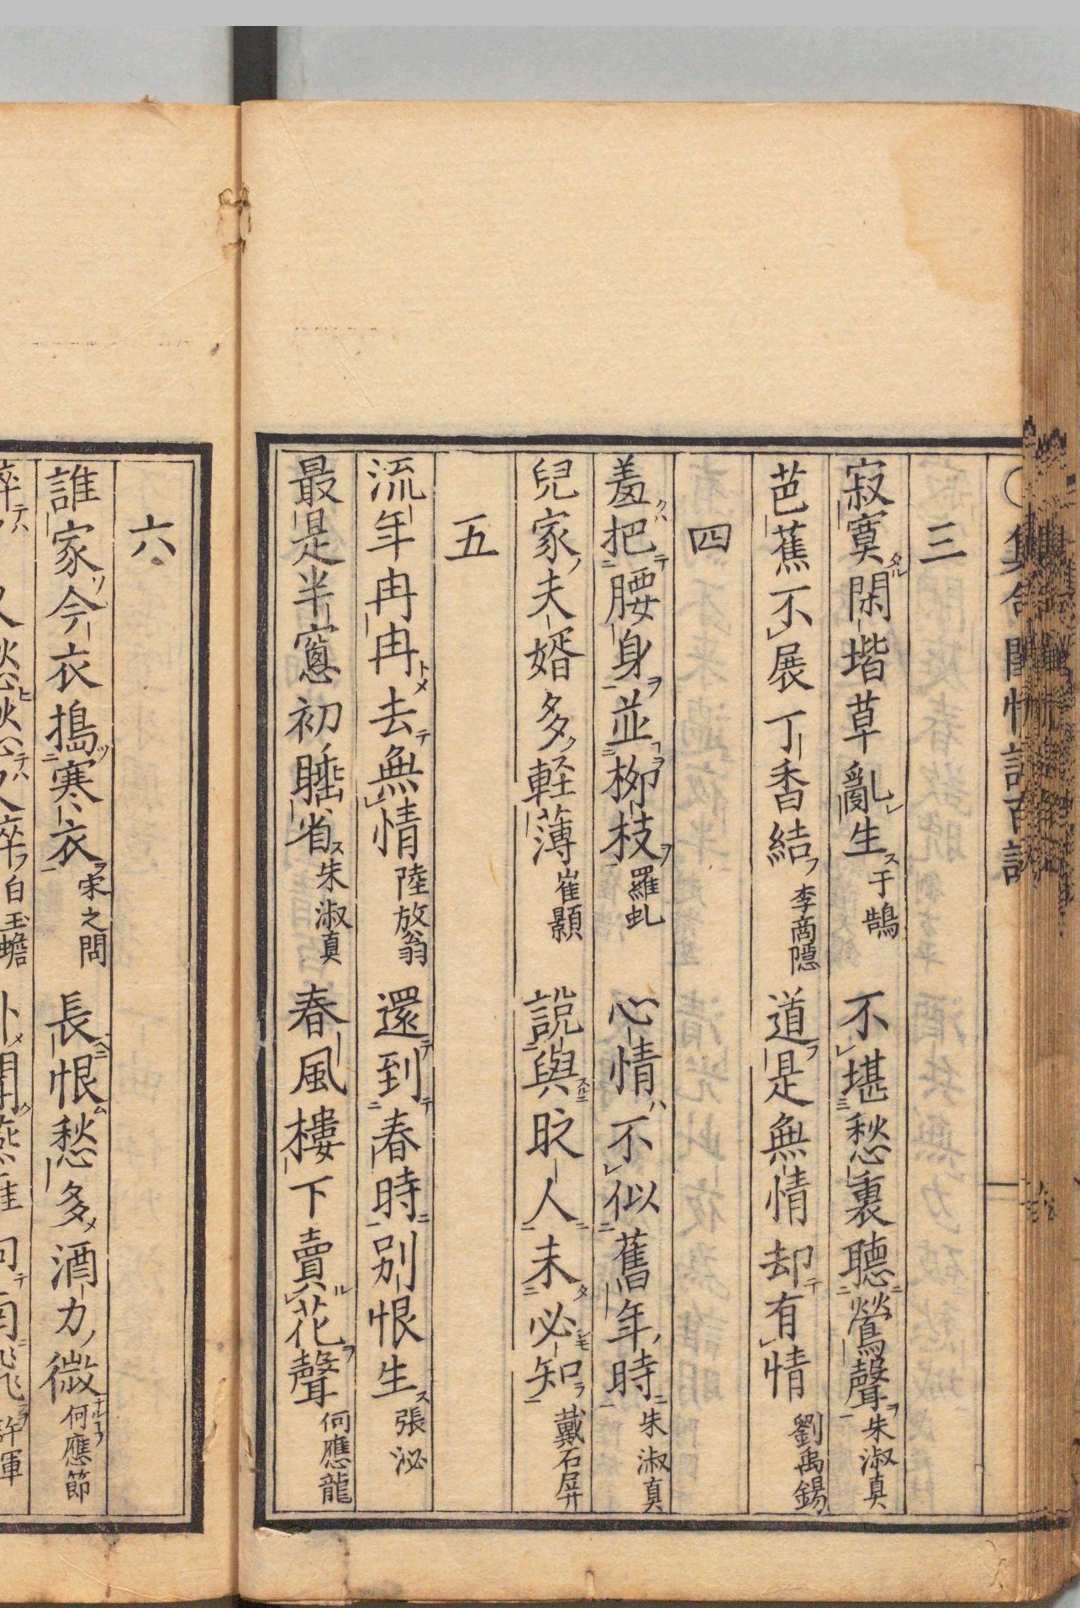 集句閨情詩百詠
三
寂寞閑堦草亂生 于鵠 不堪愁裏聽鶯聲 朱淑真
芭蕉不展丁香結 李商隠 道是無情却有情 劉禹錫
四
羞把腰身並柳枝 羅虬 心情不似舊年時 朱淑真
兒家夫婿多輕薄 崔顥 説與旼人未必知 戴石屏
五
流年冉冉去無情 陸放翁 還到春時別恨生 張泌
最是半窻初睡省 朱淑真 春風樓下賣花聲 何應龍
六
誰家今衣搗寒衣 宋之問 長恨愁多酒力微 何應節